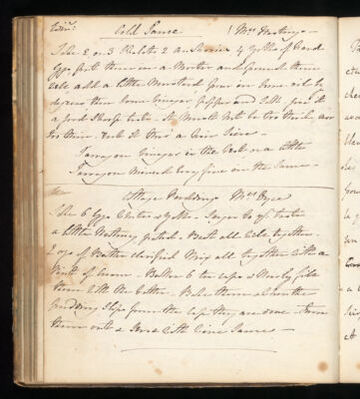 Cold Sause
Mrs Hastings
Take 2 or 3 Shalots 2 Anchovies 4 Yolks of hard
Eggs put them in a Morter and pound them
well add a little Mustard pour on some oil by
degrees then some Vinegar pepper and Salt give it
a good sharp taste. It Must Not be too thick, nor
too thin - Rub it thro' a hair Sieve -
Tarragon Vinegar is the best or a little
Tarragon Minced very fine in the Sause -
Cottage Puddings Mrs
Take 6 Eggs Whites & Yolks - Sugar to yr taste
a little Nutmeg grated - Beat all well together -
2 ozs of Butter clarified Mix all together with a
Pint of Cream - Butter 6 tea cups & Nearly fill
them with the Batter - Bake them when the
pudding slips from the cup they are done - Turn
them out & Serve with Wine Sause -